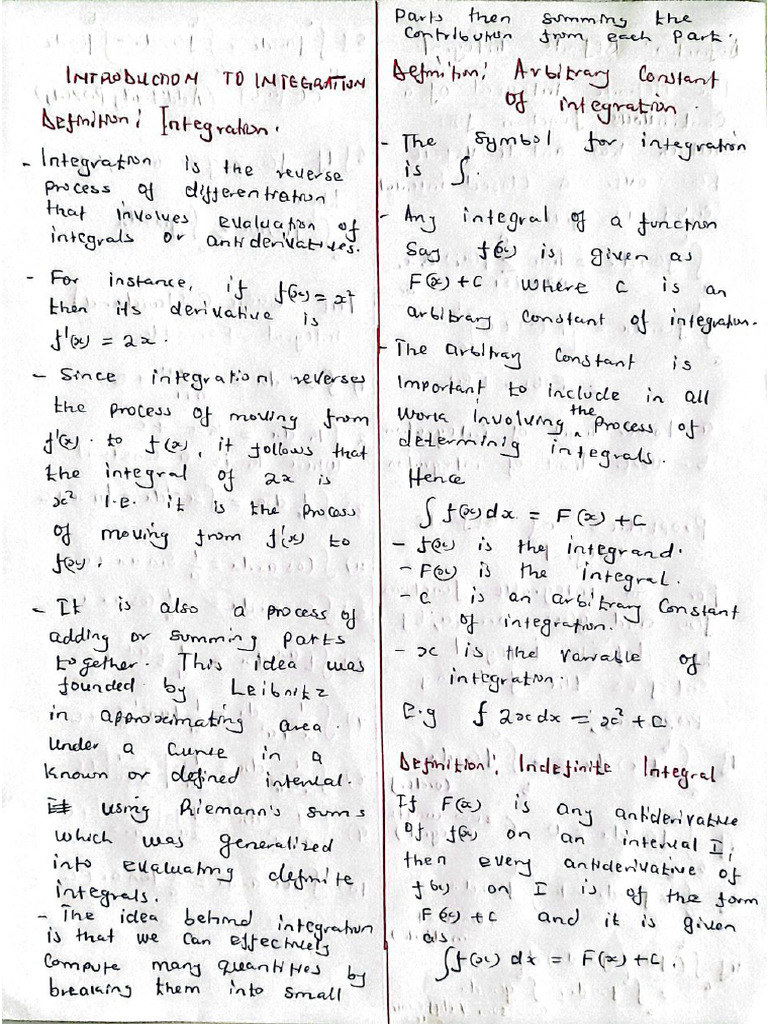 INTRODUCTION TO INTEGRATION
Definition: Integration.
- Integration is the reverse
process of differentiation
that involves evaluation of
integrals or antiderivatives.
- For instance, if f(x) = x²
then its derivative is
f'(x) = 2x.
- Since integration reverses
the process of moving from
f'(x) to f(x), it follows that
the integral of 2x is
x² i.e. it is the process
of moving from f'(x) to
f(x).
- It is also a process of
adding or summing parts
together. This idea was
founded by Leibnitz
in approximating area
under a curve in a
known or defined interval.
using Riemann's sums
which was generalized
into evaluating definite
integrals.
- The idea behind integration
is that we can effectively
compute many quantities by
breaking them into small
parts then summing the
contribution from each part.
Definition: Arbitrary Constant
of integration.
- The symbol for integration
is ∫.
- Any integral of a function
say f(x) is given as
F(x)+C where C is an
arbitrary constant of integration.
- The arbitray constant is
important to include in all
work involving the process of
determinig integrals.
Hence
∫ f(x) dx = F(x) + C
- f(x) is the integrand.
- F(x) is the integral.
- C is an arbitrary constant
of integration.
- x is the variable of
integration.
E.g ∫ 2x dx = x² + C
Definition: Indefinite Integral
If F(x) is any antiderivative
of f(x) on an interval I,
then every antiderivative of
f(x) on I is of the form
F(x) + C and it is given
as
∫f(x) dx = F(x) + C.